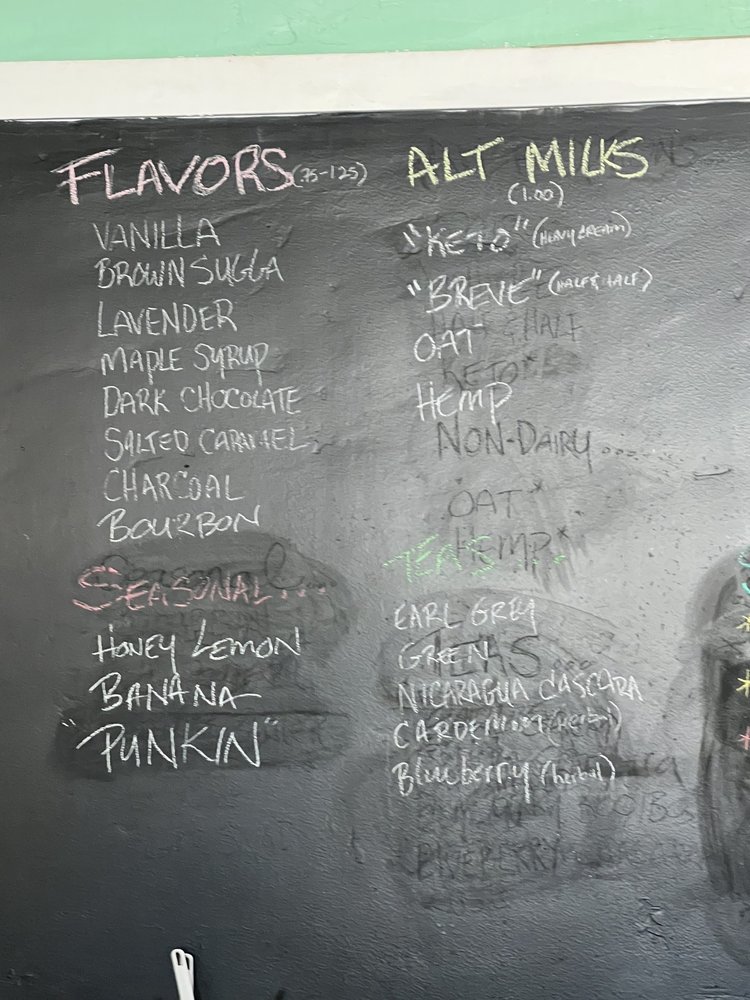 FLAVORS (.75-1.25)
VANILLA
BROWN SUGGA
LAVENDER
MAPLE SYRUP
DARK CHOCOLATE
SALTED CARAMEL
CHARCOAL
BOURBON
SEASONAL...
HONEY LEMON
BANANA
"PUNKIN"
ALT MILKS
(1.00)
"KETO" (HEAVY CREAM)
"BREVE" (HALF & HALF)
OAT
HEMP
HALF & HALF
KETO
NON-DAIRY....
OAT
HEMP
TEAS...
EARL GREY
GREEN
TEAS...
NICARAGUA CASCARA
CARDEMOM (herbal)
Blueberry (herbal)
BLUEBERRY